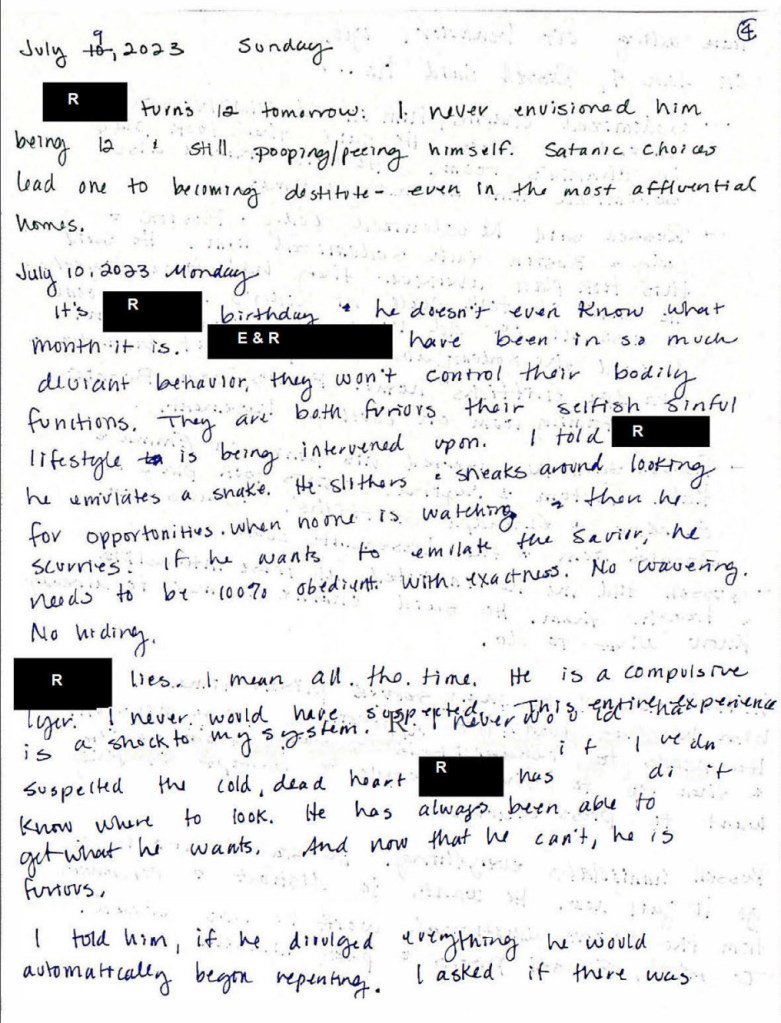 ④
July 9, 2023 Sunday
R turns 12 tomorrow. I never envisioned him
being 12 & still pooping/peeing himself. Satanic choices
lead one to becoming destitute - even in the most affluential
homes.
July 10, 2023 Monday
It's R birthday & he doesn't even know what
month it is. E & R have been in so much
deviant behavior, they won't control their bodily
functions. They are both furiovs their selfish sinful
lifestyle is being intervened upon. I told R
he emulates a snake. He slithers & sneaks around looking
for opportunities when no one is watching & then he
scurries. If he wants to emulate the Savior, he
needs to be 100% obedient with exactness. No wavering.
No hiding.
R lies. I mean all the time. He is a compulsive
lyer. I never would have suspected. This entire experience
is a shock to my system. R I never would ha
suspected the cold, dead heart R has if I
know where to look. He has always been able to
get what he wants. And now that he can't, he is
furious.
I told him, if he divulged everything he would
automatically begin repenting. I asked if there was